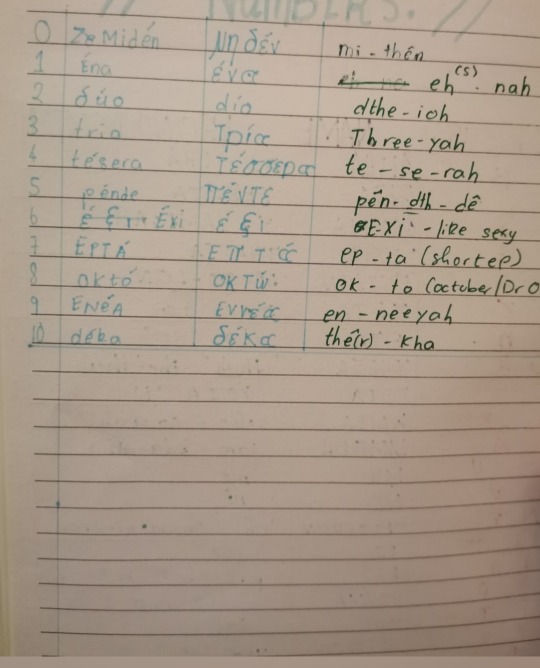 NUMBERS.
0 Midén μηδέν mi-thén
1 Éna ένα eh(s). nah
2 dúo dío dthe-ioh
3 tria Τρία Three-yah
4 tésera τέσσερα te-se-rah
5 pénde πέντε pén-dth-dê
6 Éxi έξι EXi-like sexy
7 ÉPTÁ ΕΠΤά ep-ta (shortep)
8 októ οκτώ ok-to (october/Dr O
9 ENÉA Εννέα en-neeyah
10 déka δέκα thé(r)-kha